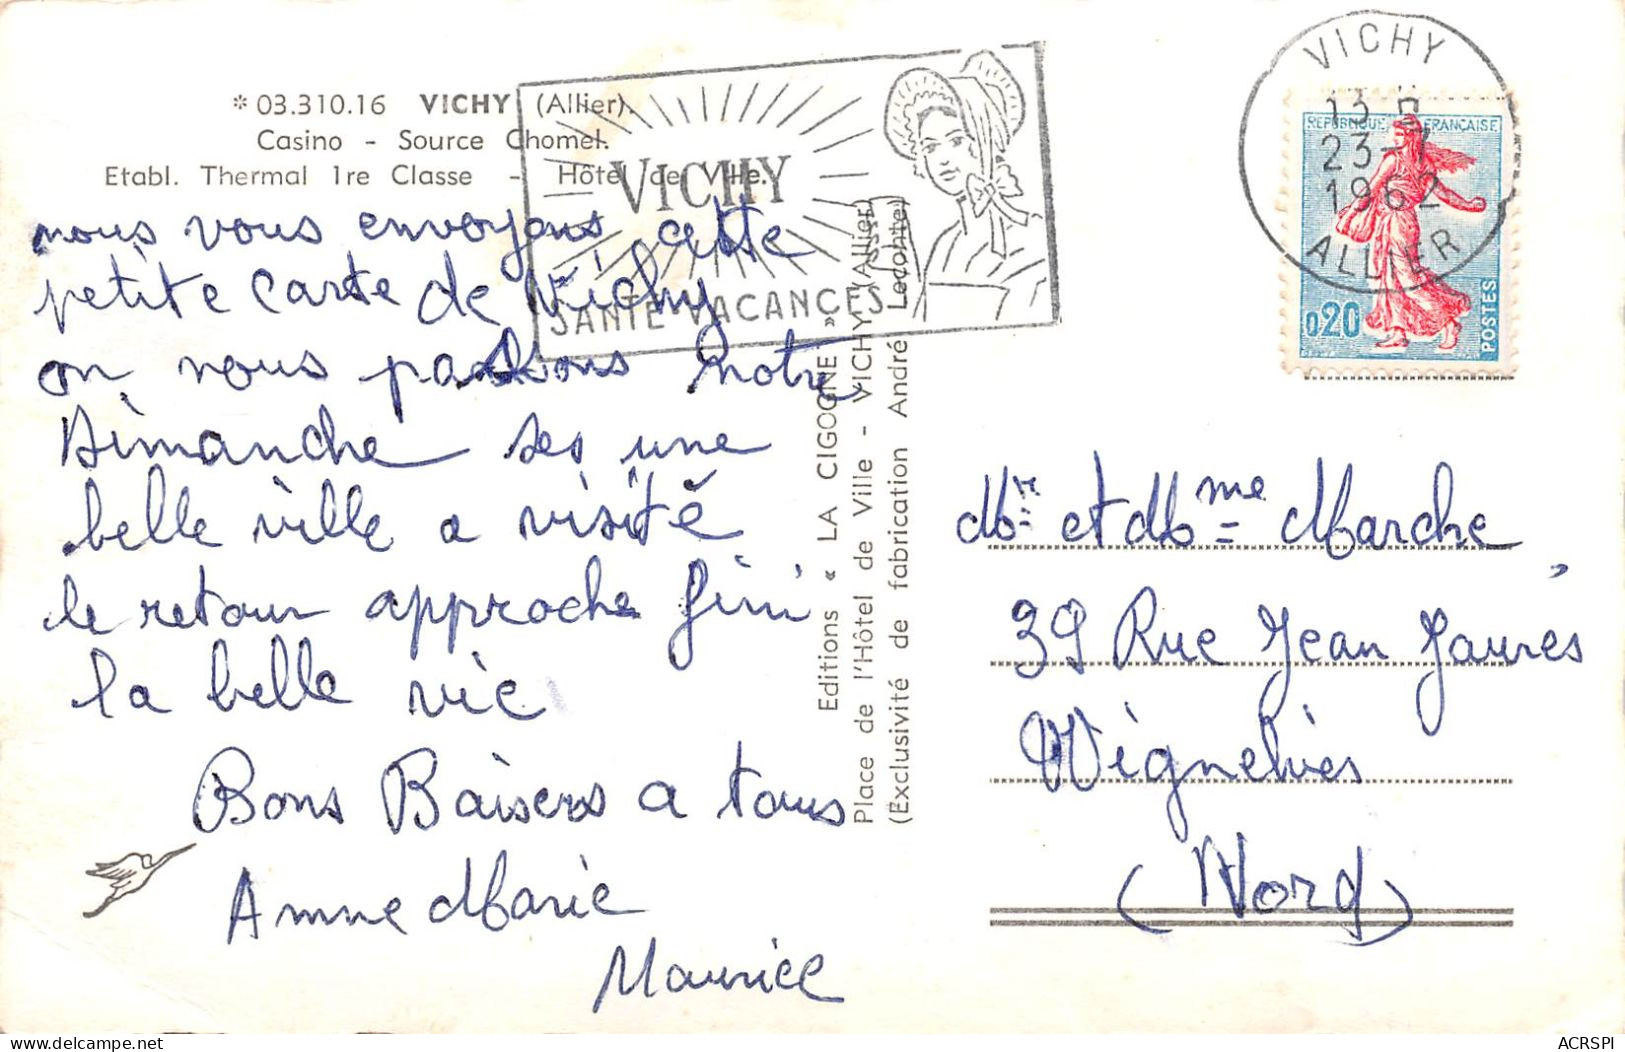 * 03.310.16 VICHY (Allier).
Casino - Source Chomel.
Etabl. Thermal 1re Classe - Hôtel de Ville.
VICHY
SANTE VACANCES
VICHY
13 H
23-7
1962
ALLIER
REPUBLIQUE FRANÇAISE
0,20
POSTES
nous vous envoyons cette
petite carte de Vichy
on nous passons notre
Dimanche ses une
belle ville a visité
le retour approche fini
la belle vie
Bons Baisers a tous
Anne Marie
Maurice
Editions « LA CIGOGNE »
Place de l'Hôtel de Ville - VICHY (Allier)
(Exclusivité de fabrication André Leconte)
Mr et Mme Marche
39 Rue Jean Jaurès
Wignehies
(Nord)
ACRSPI